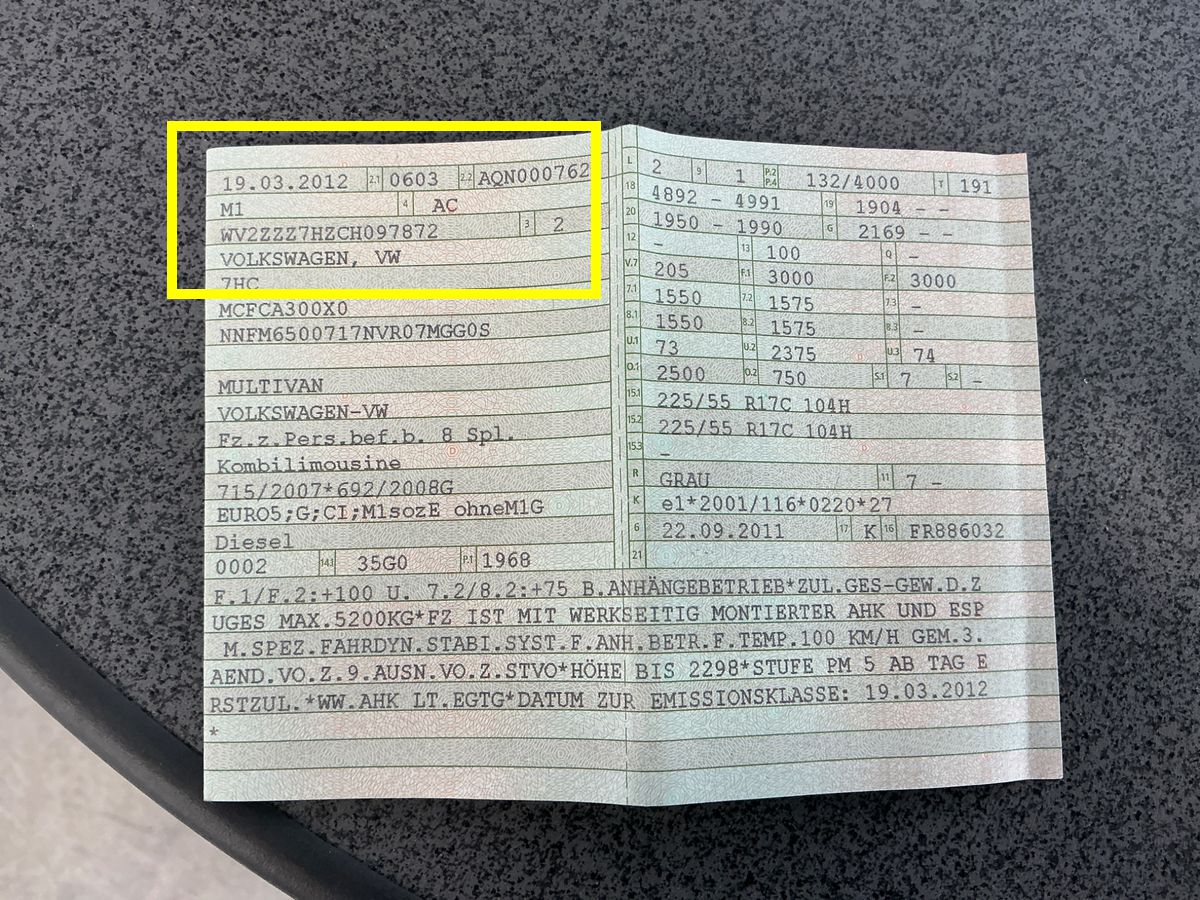 19.03.2012 2.1 0603 2.2 AQN000762
M1 4 AC
WV2ZZZ7HZCH097872 3 2
VOLKSWAGEN, VW
7HC
MCFCA300X0
NNFM6500717NVR07MGG0S
MULTIVAN
VOLKSWAGEN-VW
Fz.z.Pers.bef.b. 8 Spl.
Kombilimousine
715/2007*692/2008G
EURO5;G;CI;M1sozE ohneM1G
Diesel
0002 14.1 35G0 P.1 1968
L 2 9 1 P.2 P.4 132/4000 T 191
18 4892 - 4991 19 1904 - -
20 1950 - 1990 G 2169 - -
12 - 13 100 Q -
V.7 205 F.1 3000 F.2 3000
7.1 1550 7.2 1575 7.3 -
8.1 1550 8.2 1575 8.3 -
U.1 73 U.2 2375 U.3 74
O.1 2500 O.2 750 S.1 7 S.2 -
15.1 225/55 R17C 104H
15.2 225/55 R17C 104H
15.3 -
R GRAU 11 7 -
K e1*2001/116*0220*27
6 22.09.2011 17 K 16 FR886032
21
F.1/F.2:+100 U. 7.2/8.2:+75 B.ANHÄNGEBETRIEB*ZUL.GES-GEW.D.Z
UGES MAX.5200KG*FZ IST MIT WERKSEITIG MONTIERTER AHK UND ESP
M.SPEZ.FAHRDYN.STABI.SYST.F.ANH.BETR.F.TEMP.100 KM/H GEM.3.
AEND.VO.Z.9.AUSN.VO.Z.STVO*HÖHE BIS 2298*STUFE PM 5 AB TAG E
RSTZUL.*WW.AHK LT.EGTG*DATUM ZUR EMISSIONSKLASSE: 19.03.2012
*